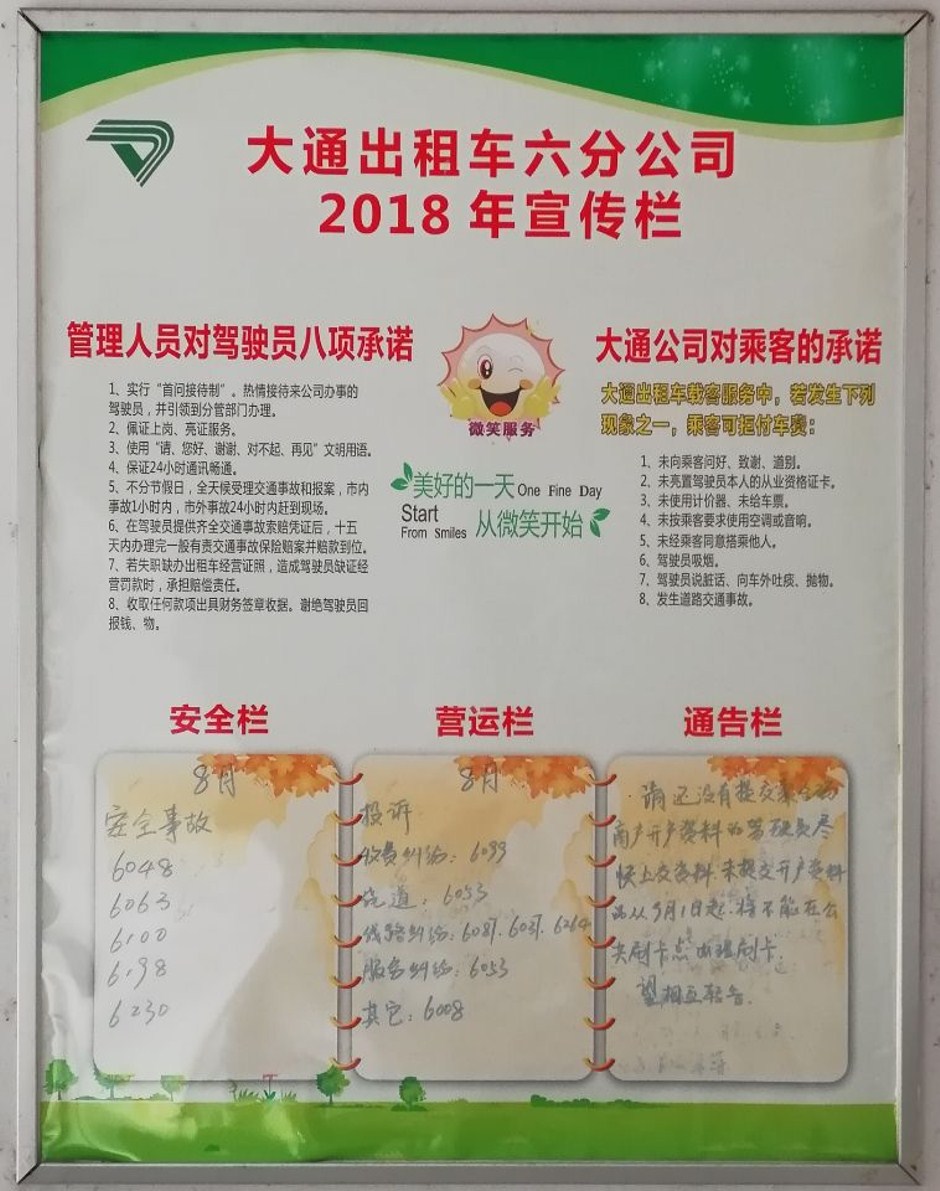 大通出租车六分公司
2018 年宣传栏
管理人员对驾驶员八项承诺
1、实行“首问接待制”。热情接待来公司办事的
驾驶员，并引领到分管部门办理。
2、佩证上岗、亮证服务。
3、使用“请、您好、谢谢、对不起、再见”文明用语。
4、保证24小时通讯畅通。
5、不分节假日，全天候受理交通事故和报案，市内
事故1小时内，市外事故24小时内赶到现场。
6、在驾驶员提供齐全交通事故索赔凭证后，十五
天内办理完一般有责交通事故保险赔案并赔款到位。
7、若失职缺办出租车经营证照，造成驾驶员缺证经
营罚款时，承担赔偿责任。
8、收取任何款项出具财务签章收据。谢绝驾驶员回
报钱、物。
微笑服务
美好的一天 One Fine Day
Start
From Smiles 从微笑开始
大通公司对乘客的承诺
大通出租车载客服务中，若发生下列
现象之一，乘客可拒付车费：
1、未向乘客问好、致谢、道别。
2、未亮置驾驶员本人的从业资格证卡。
3、未使用计价器、未给车票。
4、未按乘客要求使用空调或音响。
5、未经乘客同意搭乘他人。
6、驾驶员吸烟。
7、驾驶员说脏话、向车外吐痰、抛物。
8、发生道路交通事故。
安全栏
8月
安全事故
6048
6063
6100
6198
6230
营运栏
8月
投诉
收费纠纷：6099
绕道：6053
线路纠纷：6087、6037、6264
服务纠纷：6053
其它：6008
通告栏
请还没有提交
商户开户资料的驾驶员尽
快上交资料。未提交开户资料
的从9月1日起，将不能在公
共刷卡点出现刷卡。
望相互转告。